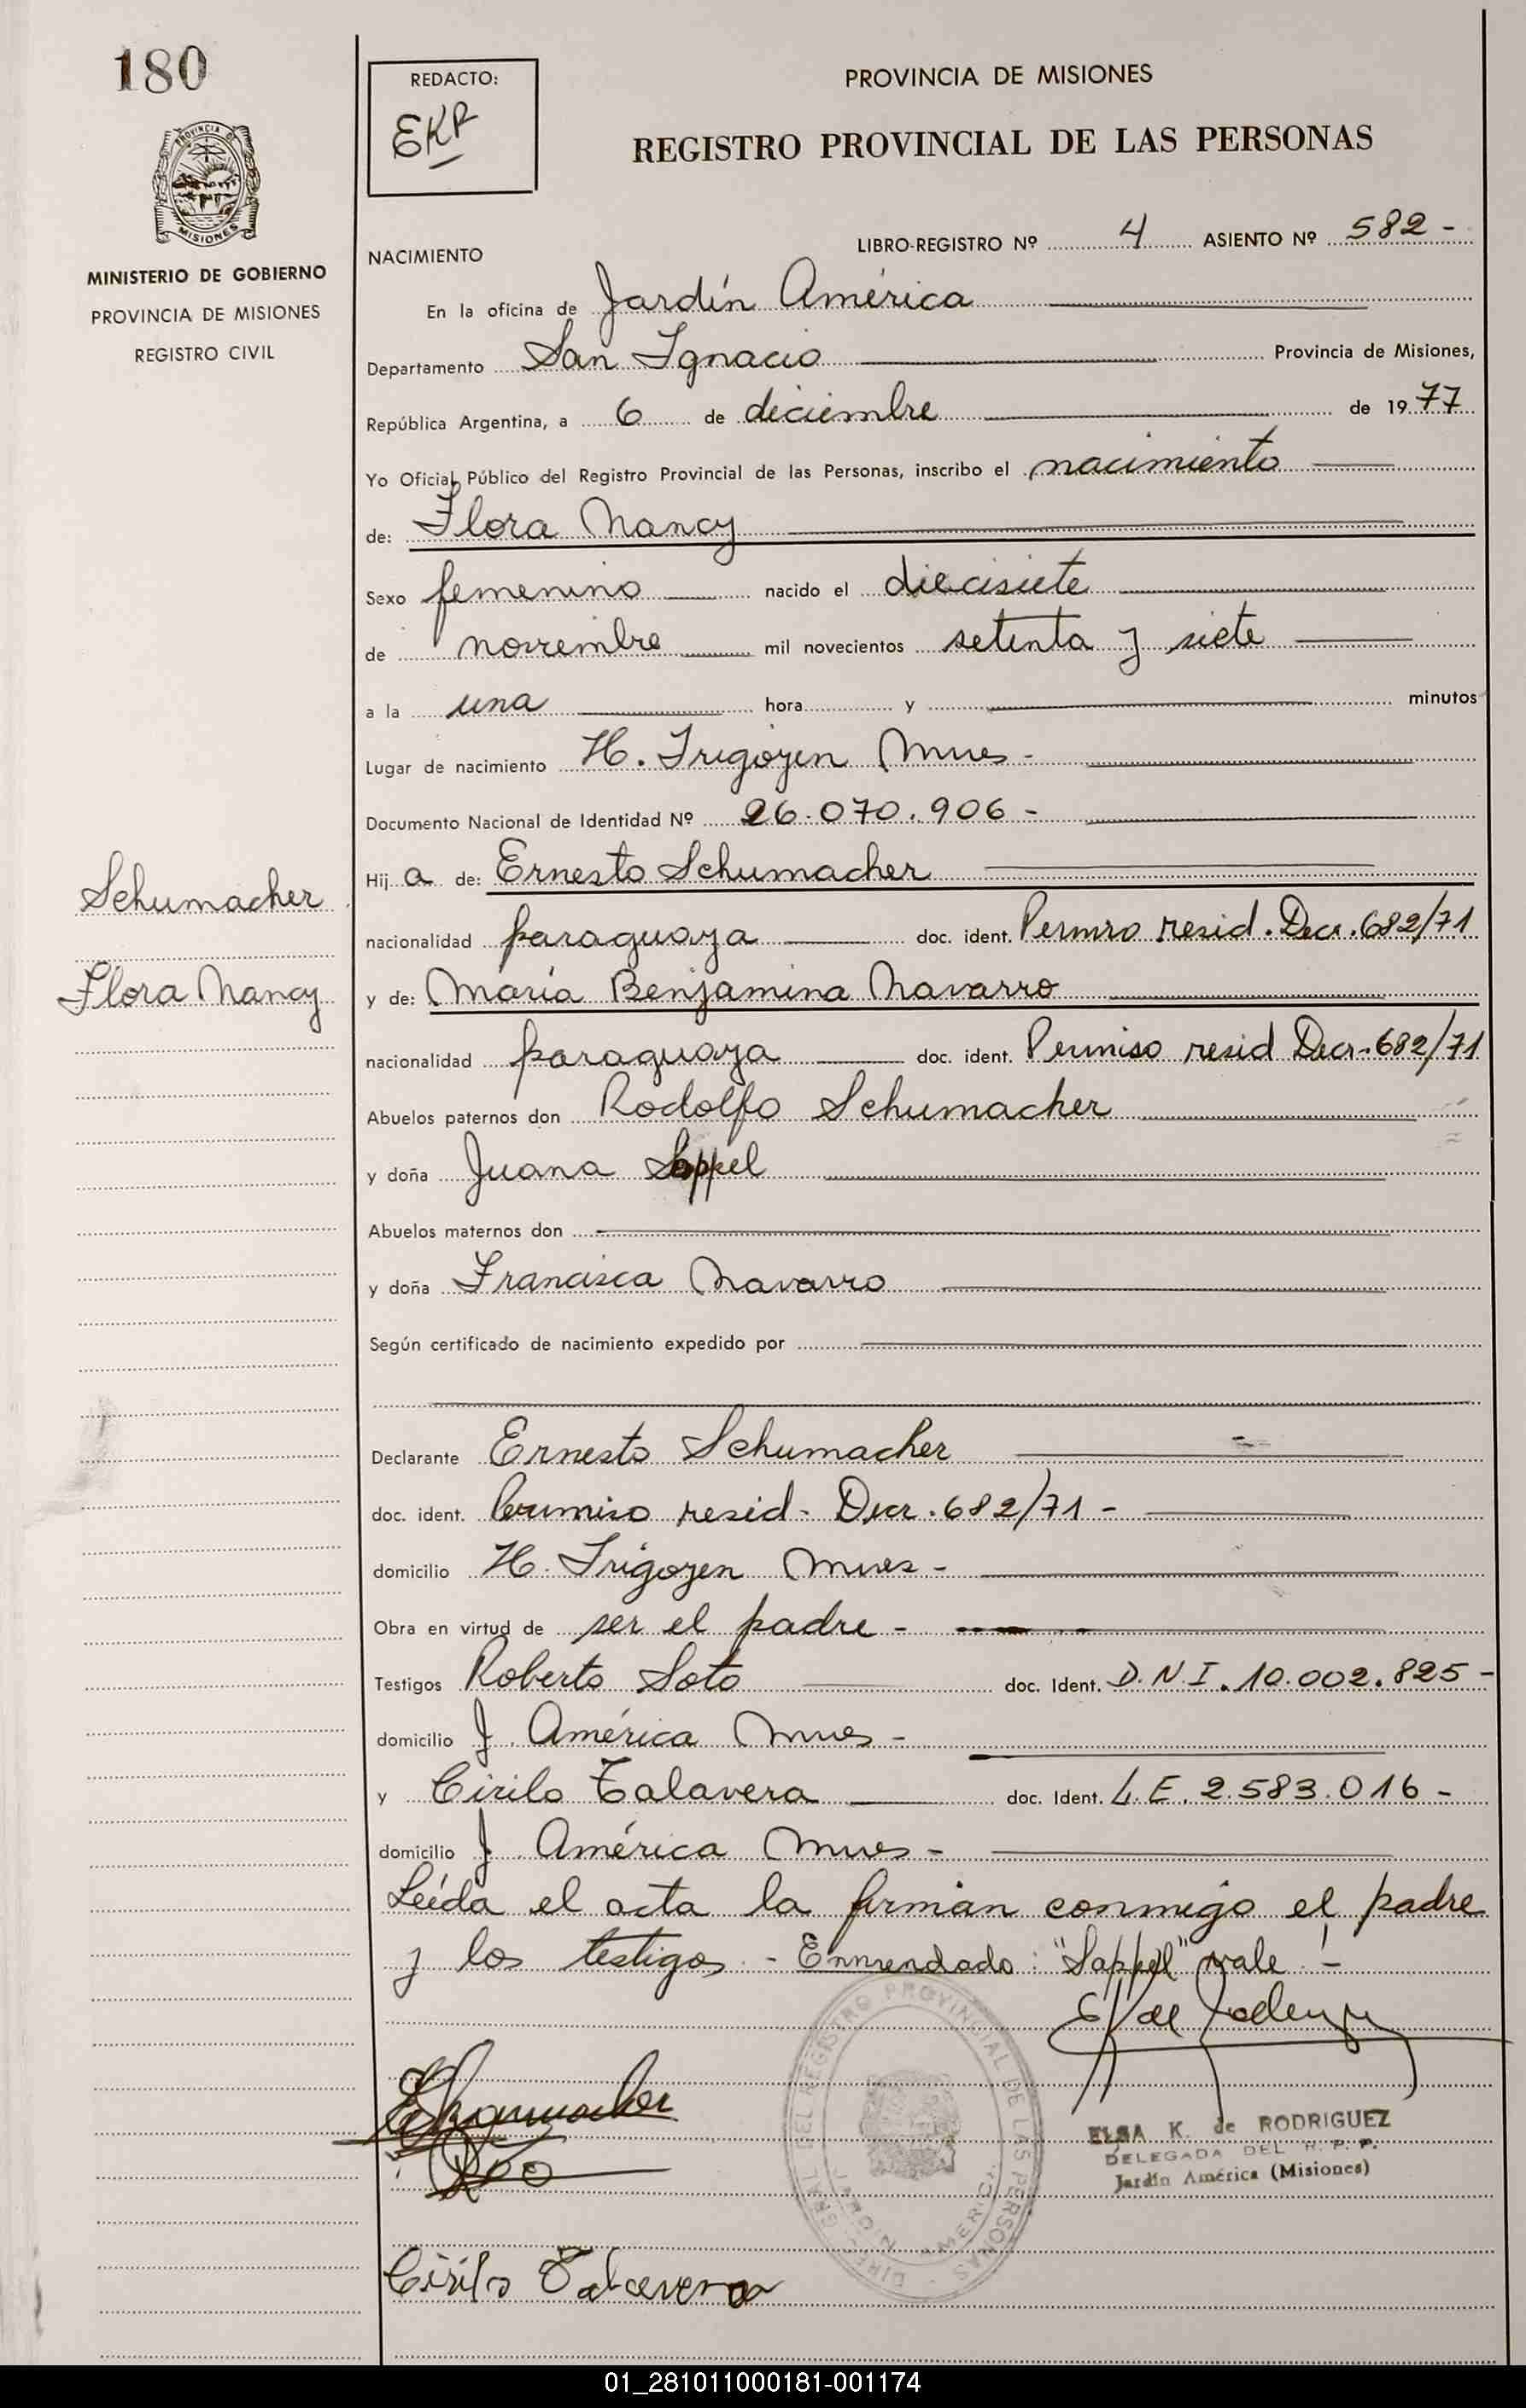 180
REDACTO:
EKR
PROVINCIA DE MISIONES
REGISTRO PROVINCIAL DE LAS PERSONAS
PROVINCIA DE
MISIONES
MINISTERIO DE GOBIERNO
PROVINCIA DE MISIONES
REGISTRO CIVIL
NACIMIENTO
LIBRO-REGISTRO Nº 4 ASIENTO Nº 582 -
En la oficina de Jardín América
Departamento San Ignacio Provincia de Misiones,
República Argentina, a 6 de diciembre de 1977
Yo Oficial Público del Registro Provincial de las Personas, inscribo el nacimiento
de: Flora Nancy
Sexo femenino nacido el diecisiete
de noviembre mil novecientos setenta y siete
a la una hora y minutos
Lugar de nacimiento H. Irigoyen Mnes -
Documento Nacional de Identidad Nº 26.070.906 -
Hij a de: Ernesto Schumacher
Schumacher
nacionalidad paraguaya doc. ident. Permiso resid. Decr. 682/71
Flora Nancy
y de: María Benjamina Navarro
nacionalidad paraguaya doc. ident. Permiso resid Decr. 682/71
Abuelos paternos don Rodolfo Schumacher
y doña Juana Sappel
Abuelos maternos don
y doña Francisca Navarro
Según certificado de nacimiento expedido por
Declarante Ernesto Schumacher
doc. ident. Permiso resid - Decr. 682/71 -
domicilio H. Irigoyen Mnes -
Obra en virtud de ser el padre -
Testigos Roberto Soto doc. Ident. D.N.I. 10.002.825 -
domicilio J. América Mnes -
y Cirilo Talavera doc. Ident. L.E. 2.583.016 -
domicilio J. América Mnes -
Leída el acta la firman conmigo el padre
y los testigos. - Enmendado: "Sappel" vale! -
DIREC. GRAL. DEL REGISTRO PROVINCIAL DE LAS PERSONAS
JARDIN AMERICA
ELSA K. de RODRIGUEZ
DELEGADA DEL R. P. P.
Jardín América (Misiones)
Cirilo Talavera
01_281011000181-001174